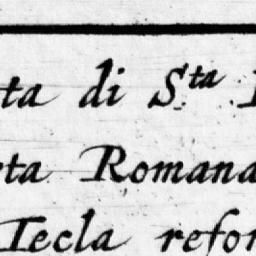 ta di Sta
ta Romana
Tecla refor